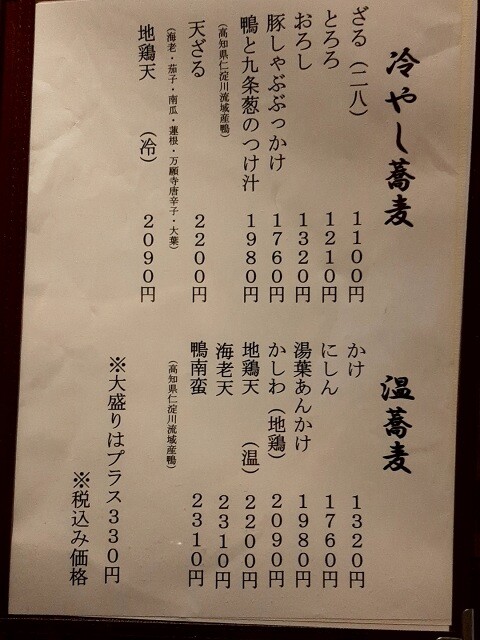 冷やし蕎麦
ざる（二八） 1100円
とろろ 1210円
おろし 1320円
豚しゃぶぶっかけ 1760円
鴨と九条葱のつけ汁 1980円
（高知県仁淀川流域産鴨）
天ざる 2200円
（海老・茄子・南瓜・蓮根・万願寺唐辛子・大葉）
地鶏天 （冷） 2090円
温蕎麦
かけ 1320円
にしん 1760円
湯葉あんかけ 1980円
かしわ（地鶏） 2090円
地鶏天 （温） 2200円
海老天 2310円
鴨南蛮 2310円
（高知県仁淀川流域産鴨）
※大盛りはプラス330円
※税込み価格